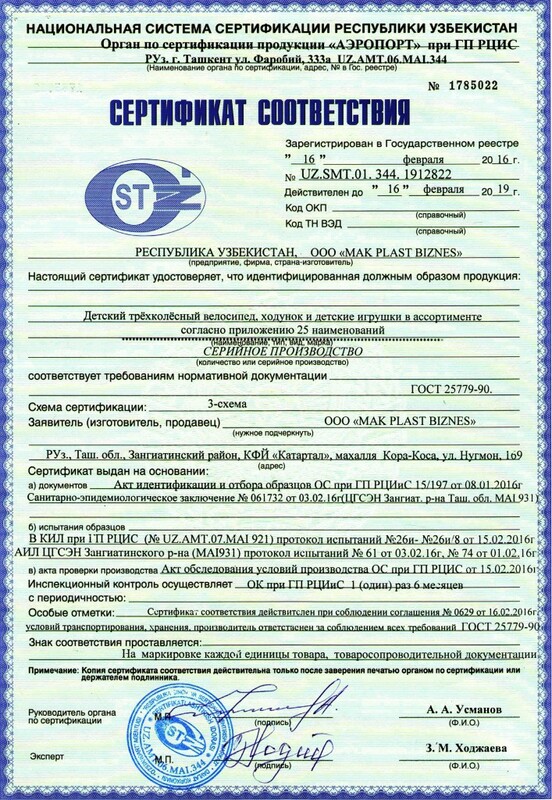 НАЦИОНАЛЬНАЯ СИСТЕМА СЕРТИФИКАЦИИ РЕСПУБЛИКИ УЗБЕКИСТАН
Орган по сертификации продукции «АЭРОПОРТ» при ГП РЦИС
РУз. г. Ташкент ул. Фаробий, 333а UZ.AMT.06.MAI.344
(Наименование органа по сертификации, адрес, № в Гос. реестре)
№ 1785022
СЕРТИФИКАТ СООТВЕТСТВИЯ
Зарегистрирован в Государственном реестре
" 16 " февраля 2016 г.
№ UZ.SMT.01. 344. 1912822
Действителен до " 16 " февраля 2019 г.
Код ОКП
(справочный)
Код ТН ВЭД
(справочный)
ST
РЕСПУБЛИКА УЗБЕКИСТАН, ООО «MAK PLAST BIZNES»
(предприятие, фирма, страна-изготовитель)
Настоящий сертификат удостоверяет, что идентифицированная должным образом продукция:
Детский трёхколёсный велосипед, ходунок и детские игрушки в ассортименте
согласно приложению 25 наименований
(наименование, тип, вид, марка)
СЕРИЙНОЕ ПРОИЗВОДСТВО
(количество или серийное производство)
соответствует требованиям нормативной документации
ГОСТ 25779-90.
Схема сертификации: 3-схема
Заявитель (изготовитель, продавец) ООО «MAK PLAST BIZNES»
(нужное подчеркнуть)
РУз., Таш. обл., Зангиатинский район, КФЙ «Катартал», махалля Кора-Коса, ул. Нугмон, 169
(адрес)
Сертификат выдан на основании:
а) документов Акт идентификации и отбора образцов ОС при ГП РЦИиС 15/197 от 08.01.2016г
Санитарно-эпидемиологическое заключение № 061732 от 03.02.16г(ЦГСЭН Зангиат. р-на Таш. обл. MAI 931)
б) испытания образцов
В КИЛ при ГП РЦИС (№ UZ.AMT.07.MAI 921) протокол испытаний №26и- №26и/8 от 15.02.2016г
АИЛ ЦГСЭН Зангиатинского р-на (MAI931) протокол испытаний № 61 от 03.02.16г, № 74 от 01.02.16г
в) акта проверки производства Акт обследования условий производства ОС при ГП РЦИС от 15.02.2016г
Инспекционный контроль осуществляет ОК при ГП РЦИиС 1 (один) раз 6 месяцев
с периодичностью:
Особые отметки: Сертификат соответствия действителен при соблюдении соглашения № 0629 от 16.02.2016г
условий транспортирования, хранения, производитель ответствен за соблюдением всех требований ГОСТ 25779-90
Знак соответствия проставляется:
На маркировке каждой единицы товара, товаросопроводительной документации
Примечание: Копия сертификата соответствия действительна только после заверения печатью органом по сертификации или
держателем подлинника.
Руководитель органа
по сертификации
М.П.
(подпись)
А. А. Усманов
(Ф.И.О.)
Эксперт
М.П.
(подпись)
З. М. Ходжаева
(Ф.И.О.)